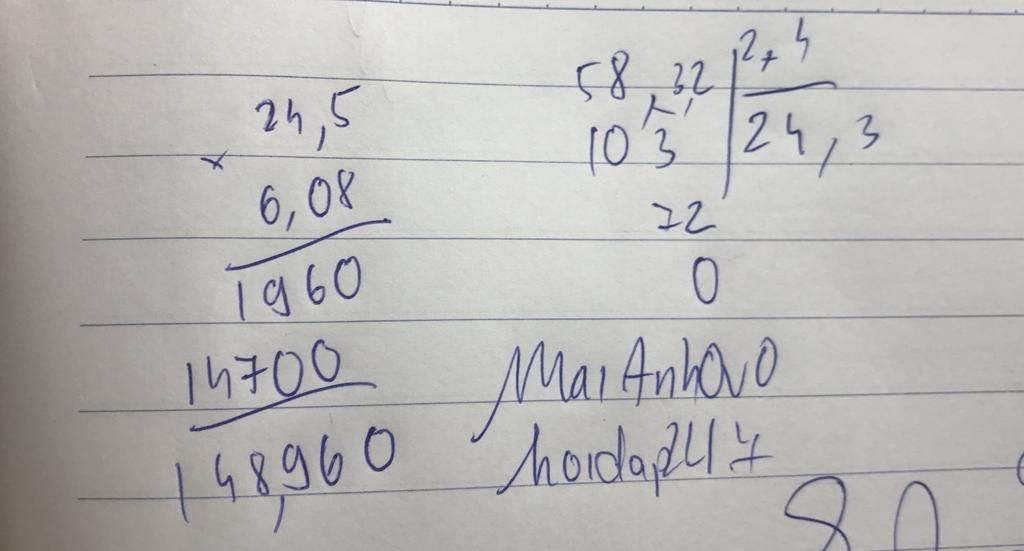 24,5
×
6,08
1960
14700
148,960
58,32 2,4
103 24,3
72
0
MaiAnhOvO
hoidap247
80